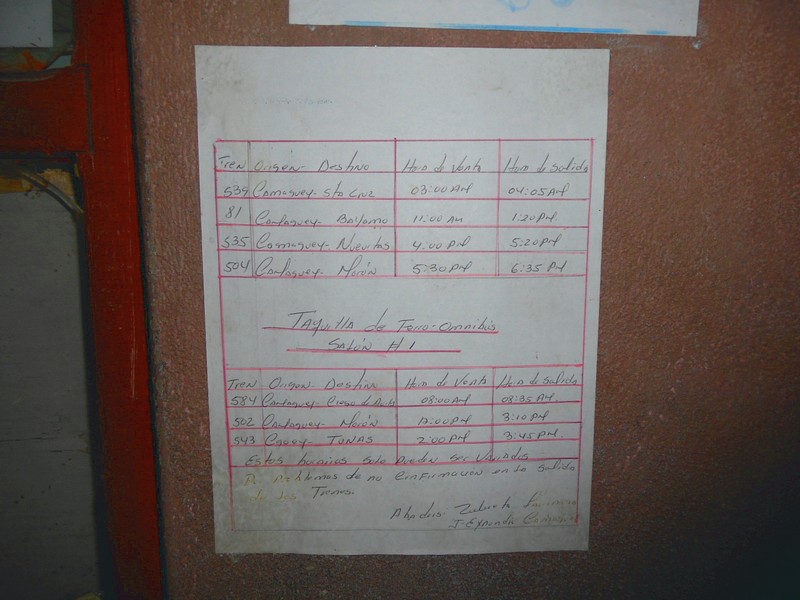 Tren Origen- Destino Hora de Venta Hora de Salida
539 Camaguey- Sta Cruz 03:00 AM 04:05 AM
81 Camaguey- Bayamo 11:00 AM 1:20 PM
535 Camaguey- Nuevitas 4:00 PM 5:20 PM
504 Camaguey- Morón 5:30 PM 6:35 PM
Taquilla de Ferro-Omnibús
Salón # 1
Tren Origen- Destino Hora de Venta Hora de Salida
584 Camaguey- Ciego de Avila 08:00 AM 08:35 AM
502 Camaguey- Morón 3:10 PM
543 Cguey- Tunas 2:00 PM 3:45 PM
Estos horarios solo pueden ser Variados
Por Problemas de no Confirmación en la Salida
de los Trenes.